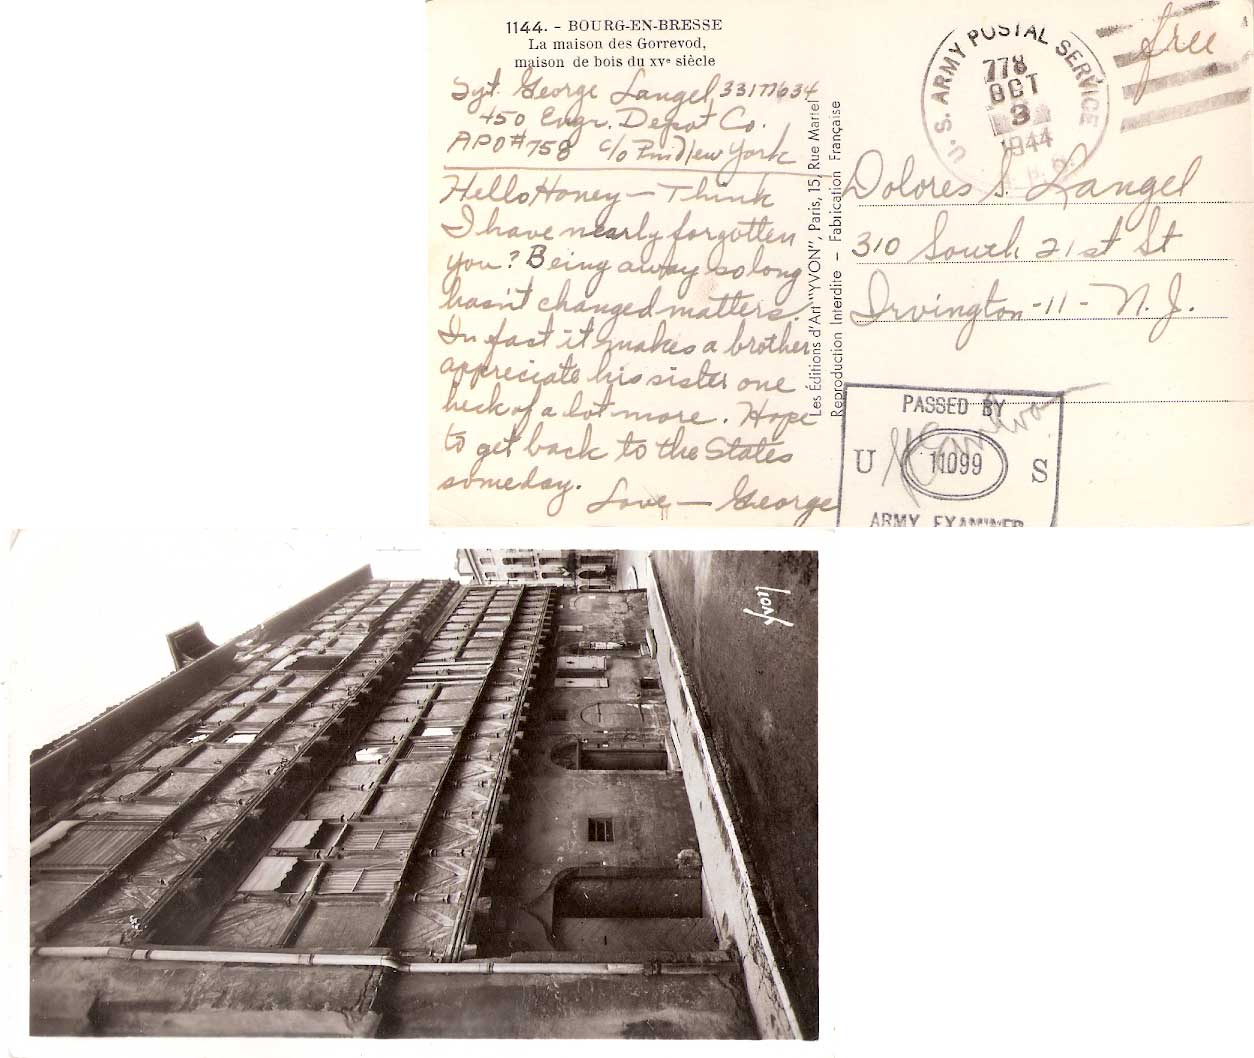 1144. - BOURG-EN-BRESSE
La maison des Gorrevod,
maison de bois du XVe siècle
Sgt. George Langel, 33177634
450 Engr. Depot Co.
APO #758 c/o P.M. New York
Hello Honey - Think
I have nearly forgotten
you? Being away so long
hasn't changed matters.
In fact it makes a brother
appreciate his sister one
heck of a lot more. Hope
to get back to the States
someday.
Love - George
Les Éditions d'Art "YVON", Paris, 15, Rue Martel
Reproduction Interdite - Fabrication Française
U.S. ARMY POSTAL SERVICE
778
OCT
3
1944
free
Dolores S. Langel
310 South 21st St
Irvington - 11 - N.J.
PASSED BY
U 11099 S
ARMY EXAMINER
Yvon